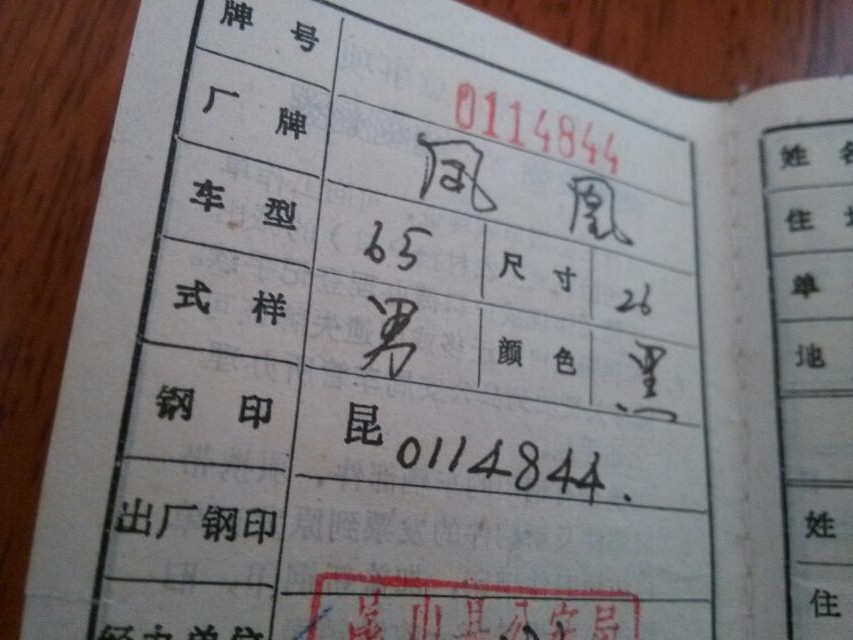 牌号 0114844
厂牌 凤凰
车型 65 尺寸 26
式样 男 颜色 黑
钢印 昆0114844.
出厂钢印
经办单位 昆山县公安局
姓名
住
单
地
姓
住